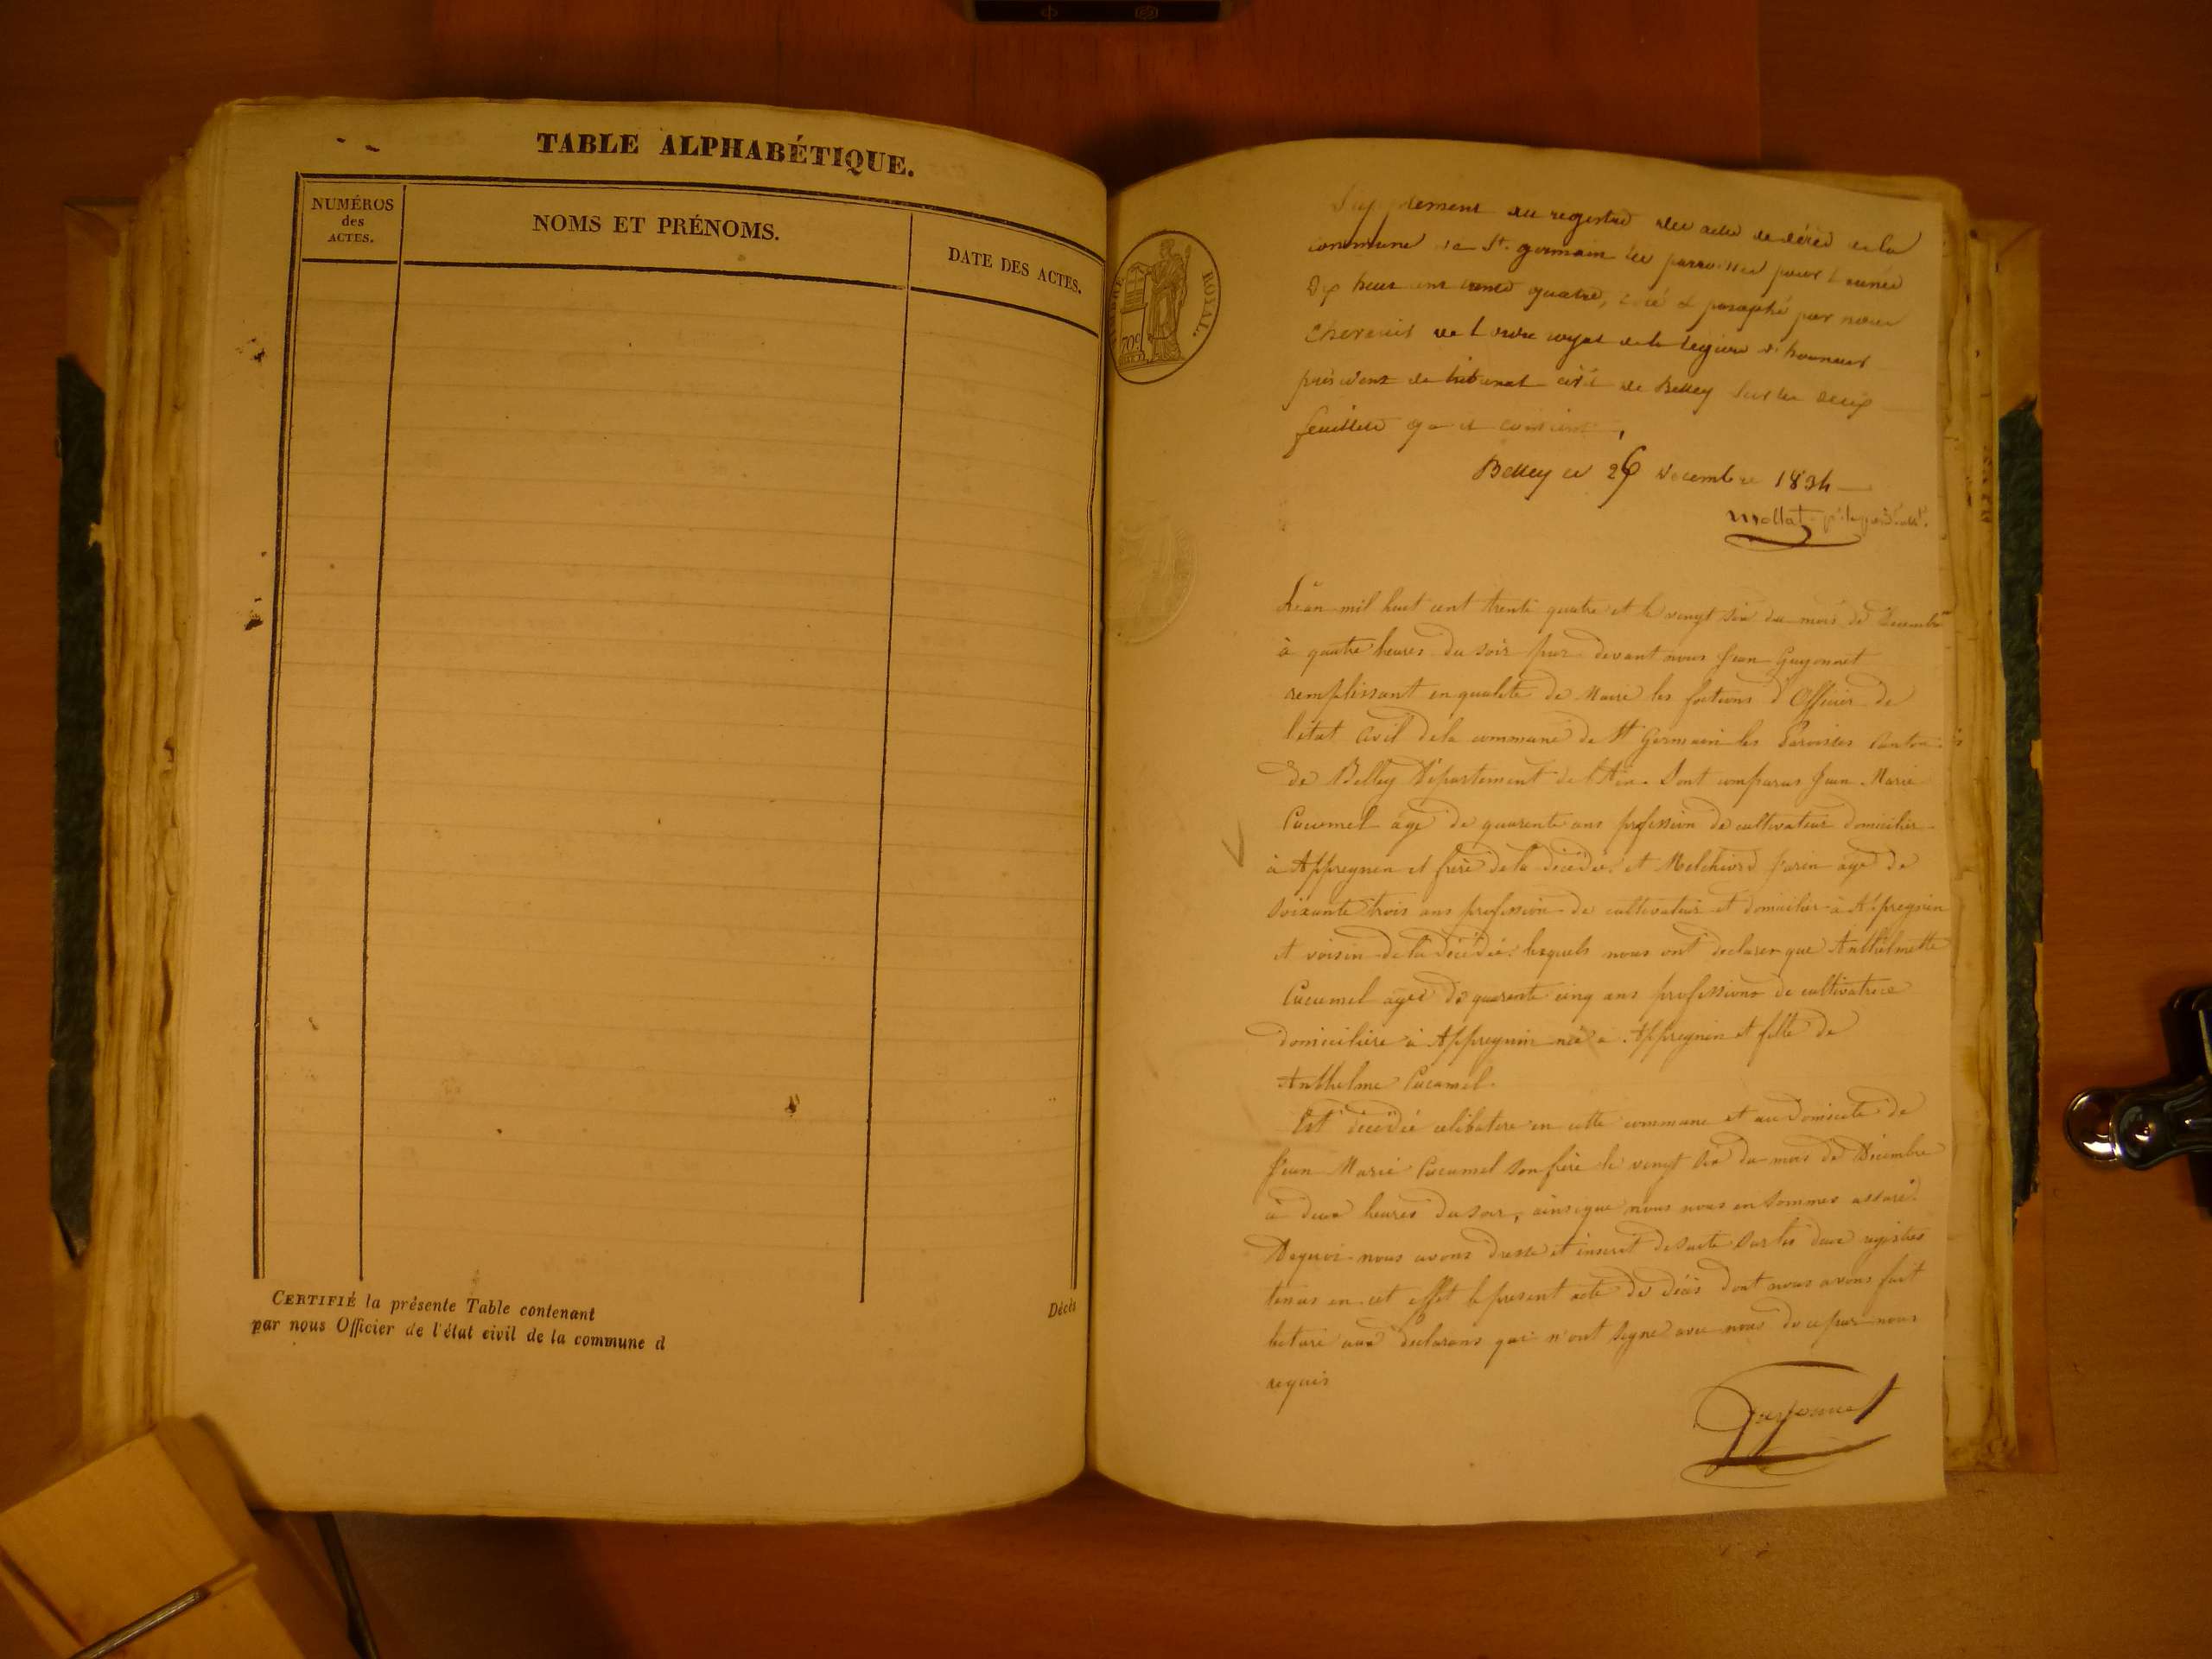 TABLE ALPHABÉTIQUE.
NUMÉROS
des
ACTES.
NOMS ET PRÉNOMS.
DATE DES ACTES.
CERTIFIÉ la présente Table contenant
par nous Officier de l'état civil de la commune d
Décès
TIMBRE ROYAL.
70c
Supplement au registre des actes de décès de la
commune de St. germain les parroisses pour l'année
Dix huit cent trente quatre, coté & paraphé par nous
Chevalier de l'ordre royal de la légion d'honneur
président du tribunal civil de Belley sur les deux
feuillets qu'il contient,
Belley ce 26 décembre 1834
Mollat
L'an mil huit cent trente quatre et le vengt six du mois de Decembre
à quatre heures du soir par devant nous Jean Guyonnet
remplissant en qualité de Maire les foctions d'Officier de
l'état Civil de la commune de St Germain les Paroisses Canton
de Belley Département de l'Ain. Sont comparus Jean Marie
Cucumel agé de quarente ans profession de cultivateur domicilier
à Appregnin et frère de la décédée. et Melchiord Parin agé de
soixante trois ans profession de cultivateur et domicilier à Appregnin
et voisin de la décédée. lesquels nous ont declarer que Anthelmette
Cucumel agée de quarente cinq ans professions de cultivatrice
domicilière à Appregnin née à Appregnin et fille de
Anthelme Cucumel.
Est décédée celibatere en cette commune et au domicile de
Jean Marie Cucumel son frère le vengt six du mois de Décembre
à deux heures du soir, ainsi que nous nous en sommes assuré.
Dequoi nous avons dressé et inscrit de suite sur les deux registres
tenus en cet effet le present acte de décès dont nous avons fait
lecture aux declarans qui n'ont signé avec nous de ce par nous
requis
Guyonnet